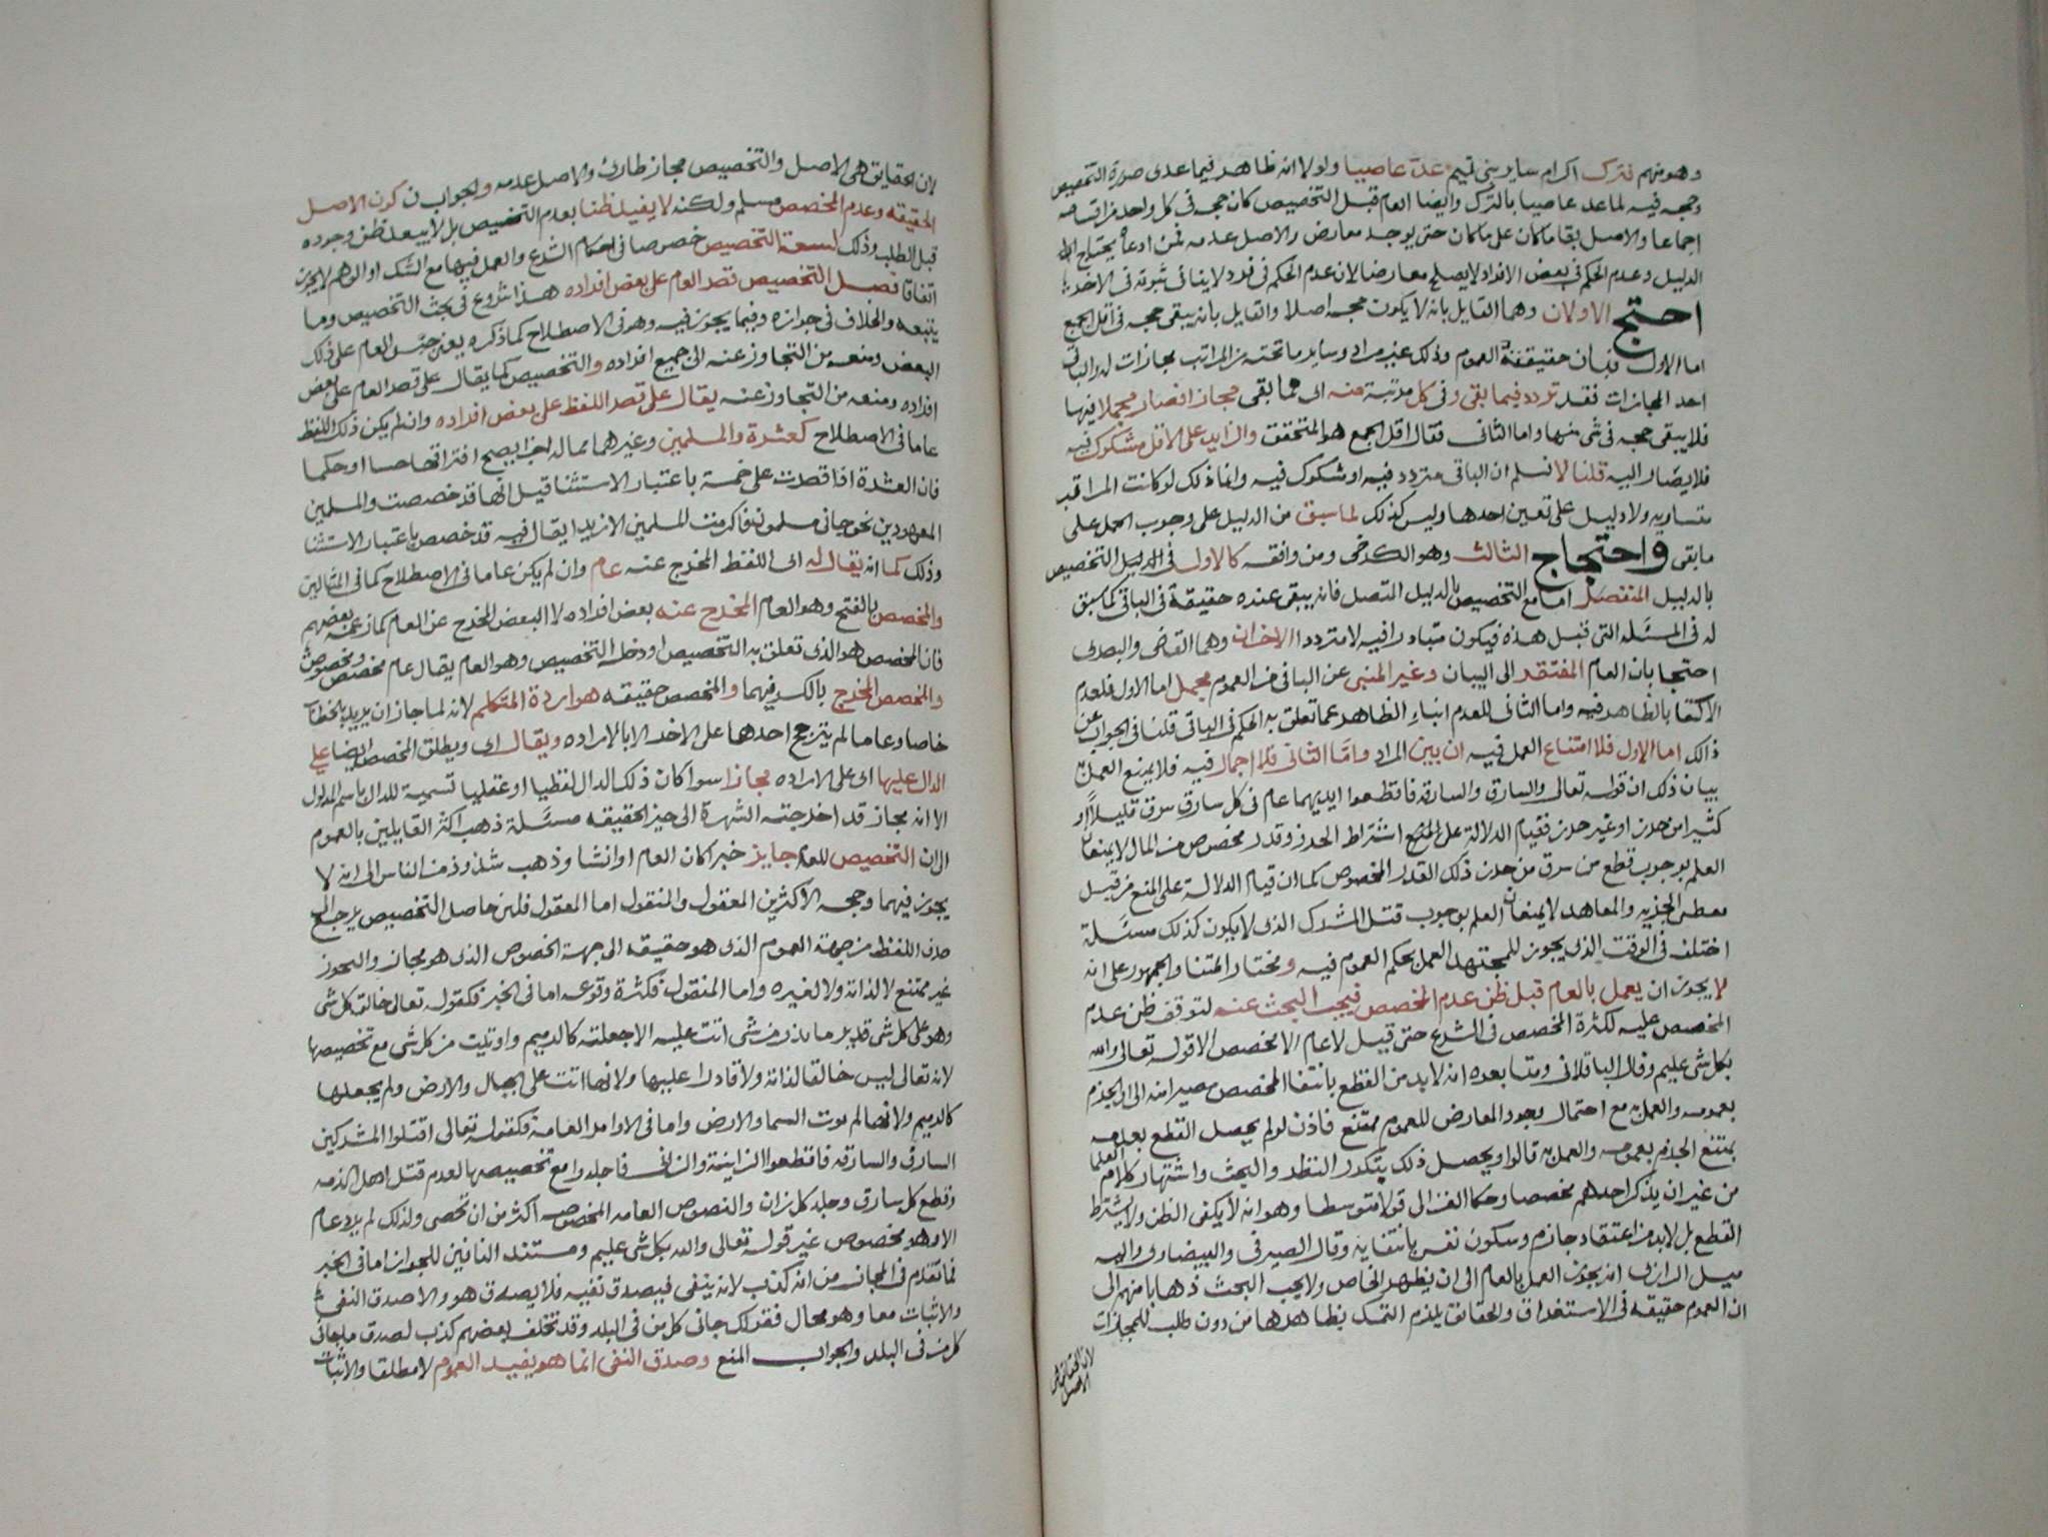 وهو منهم فترك اكرام ساير بني تميم عد عاصيا ولولا انه ظاهر فيما عدى صورة التخصيص
وحجه فيه لما عد عاصيا بالترك وايضا العام قبل التخصيص كان حجه في كل واحد من اقسامه
اجماعا والاصل بقا ماكان على ماكان حتى يوجد معارض والاصل عدمه فمن ادعاه يحتاج الى
الدليل وعدم الحكم في بعض الافراد لا يصلح معارضا لان عدم الحكم في فرد لا ينافي ثبوته في الاخر
احتج الاولان وهما القايل بانه لا يكون حجه اصلا والقايل بانه يبقى حجه في اقل الجمع
اما الاول فبان حقيقته العموم وذلك غير مراد وساير ما تحته من المراتب مجازات له والباقي
احد المجازات فقد تردد فيما بقي وفي كل مرتبة منه اي مما بقي مجاز افصار مجملا فيها
فلا يبقى حجه في شي منها واما الثاني فقال اقل الجمع هو المتحقق والزايد على الاقل مشكوك فيه
فلا يصار اليه قلنا لا نسلم ان الباقي متردد فيه او شكوك فيه وانما ذلك لو كانت المراتب
متساويه ولا دليل على تعين احدها وليس كذلك لما سبق من الدليل على وجوب الحمل على
مابقي واحتجاج الثالث وهو الكرخي ومن وافقه كالاول في الدليل التخصيص
بالدليل المنفصل اما مع التخصيص بالدليل المتصل فانه يبقى عنده حقيقة في الباقي كما سبق
له في المسئله التي قبل هذه فيكون متبادرا فيه لا مترددا الاخران وهما القاضي والبصري
احتجا بان العام المفتقر الى البيان وغير المنبي عن الباقي من العموم مجمل اما الاول فلعدم
الاكتفا بالظاهر فيه واما الثاني فلعدم انباء الظاهر عما تعلق به الحكم في الباقي قلنا في الجواب عن
ذلك اما الاول فلا امتناع العمل فيه ان بين المراد واما الثاني فلا اجمال فيه فلا يمنع العمل به
بيان ذلك ان قوله تعالى والسارق والسارقه فاقطعوا ايديهما عام في كل سارق سرق قليلا او
كثيرا من حرز او غير حرز فقيام الدلالة على المنع اشتراط الحرز وقدر مخصوص من المال لا يمنعان
العلم بوجوب قطع من سرق من حرز ذلك القدر المخصوص كما ان قيام الدلالة على المنع من قتل
معطي الجزيه والمعاهد لا يمنعان العلم بوجوب قتل المشرك الذي لا يكون كذلك مسئلة
اختلف في الوقت الذي يجوز للمجتهد العمل بحكم العموم فيه ومختار المتنا والجمهور على انه
لا يجوز ان يعمل بالعام قبل ظن عدم المخصص فيجب البحث عنه لتوقف ظن عدم
المخصص عليه لكثرة المخصص في الشرع حتى قيل لا عام الا مخصص الا قوله تعالى والله
بكل شي عليم وقال الباقلاني ومتابعوه انه لا بد من القطع بانتفا المخصص مصيرا منه الى ان الجزم
بعمومه والعمل به مع احتمال وجود المعارض للعموم ممتنع فاذن لو لم يحصل القطع بعدمه
يمتنع الجزم بعمومه والعمل به قالوا ويحصل ذلك بتكرر النظر والبحث واشتهار كلام العلما
من غير ان يذكر احدهم مخصصا وحكا الغزالي قولا متوسطا وهو انه لا يكفي الظن ولا يشترط
القطع بل لا بد من اعتقاد جازم وسكون نفس بانتفايه وقال الصيرفي والبيضاوي واليه
ميل الرازي انه يجوز العمل بالعام الى ان يظهر الخاص ولا يجب البحث ذهابا منهم الى
ان العموم حقيقه في الاستغراق والحقائق يلزم التمسك بظاهرها من دون طلب للمجازات
لان الحقائق هي
الاصل
لان الحقايق هي الاصل والتخصيص مجاز طارئ والاصل عدمه والجواب ن كون الاصل
الحقيقه وعدم المخصص مسلم ولكنه لا يفيد ظنا بعدم التخصيص بل لا يبعد ظن وجوده
قبل الطلب وذلك لسعة التخصيص خصوصا في احكام الشرع والعمل فيها مع الشك او الوهم لا يجوز
اتفاقا فصل التخصيص قصر العام على بعض افراده هذا شروع في بحث التخصيص وما
يتبعه والخلاف في جوازه وفيما يجوز فيه وهو في الاصطلاح كما ذكره يعني حبس العام على ذلك
البعض ومنعه من التجاوز عنه الى جميع افراده والتخصيص كما يقال على قصر العام على بعض
افراده ومنعه من التجاوز عنه يقال على قصر اللفظ على بعض افراده وان لم يكن ذلك اللفظ
عاما في الاصطلاح كعشرة والمسلمين وغيرهما مما له اجزا يصح افتراقها حسا او حكما
فان العشرة اذا قصرت على خمسة باعتبار الاستثنا قيل انها قد خصصت والمسلمين
المعهودين نحو جاني مسلمون فاكرمت المسلمين الا زيدا يقال فيه قد خصص باعتبار الاستثنا
وذلك كما انه يقال له اي اللفظ المخرج عنه عام وان لم يكن عاما في الاصطلاح كما في المثالين
والمخصص بالفتح وهو العام المخرج عنه بعض افراده لا البعض المخرج عن العام كما زعمه بعضهم
فان المخصص هو الذي تعلق به التخصيص او دخله التخصيص وهو العام يقال عام مخصص ومخصوص
والمخصص المخرج بالكسر فيهما والمخصص حقيقه هو اردة المتكلم لانه لما جاز ان يريد بالخطاب
خاصا وعاما لم يترجح احدهما على الاخر الا بالاراده ويقال اي ويطلق المخصص ايضا على
الدال عليها اي على الاراده مجازا سوا كان ذلك الدال لفظيا او عقليا تسمية للدال باسم المدلول
الا انه مجاز قد اخرجته الشهرة الى حيز الحقيقه مسئلة ذهب اكثر القايلين بالعموم
الى ان التخصيص للعام جايز خبرا كان العام او انشا وذهب شذوذ من الناس الى انه لا
يجوز فيهما وحجه الاكثرين المعقول والمنقول اما المعقول فلان حاصل التخصيص يرجع الى
صرف اللفظ من جهة العموم الذي هو حقيقه الى جهة الخصوص الذي هو مجاز والتجوز
غير ممتنع لا لذاته ولا لغيره واما المنقول فكثرة وقوعه اما في الخبر فكقوله تعالى خالق كل شي
وهو على كل شي قدير ما تذر من شي اتت عليه الا جعلته كالرميم واوتيت من كل شي مع تخصيصها
لانه تعالى ليس خالقا لذاته ولا قادرا عليها ولانها اتت على الجبال والارض ولم يجعلها
كالرميم ولانها لم توت السما والارض واما في الاوامر العامة فكقوله تعالى اقتلوا المشركين
السارق والسارقه فاقطعوا الزانية والزاني فاجلدوا مع تخصيصها لعدم قتل اهل الذمه
وقطع كل سارق وجلد كل زان والنصوص العامه المخصوصه اكثر من ان تحصى ولذلك لم يرد عام
الا وهو مخصوص غير قوله تعالى والله بكل شي عليم ومستند النافين للجواز اما في الخبر
فما تقدم في المجاز من انه كذب لانه ينفي فيصدق نفيه فلا يصدق هو والا صدق النفي
والاثبات معا وهو محال فقولك جاني كل من في البلد وقد تخلف بعضهم كذب لصدق ماجاني
كل من في البلد والجواب المنع وصدق النفي انما هو بقيد العموم لا مطلقا والاثبات